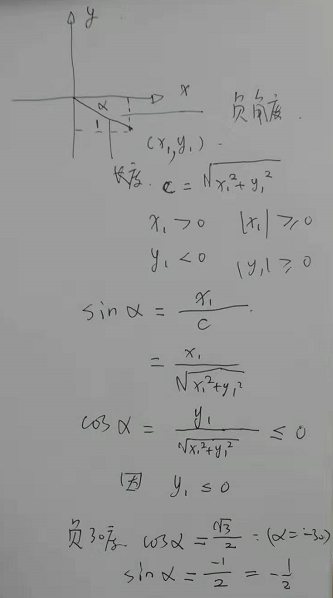 y
x
α
1
负角度.
(x₁,y₁).
长度. c = √x₁²+y₁²
x₁ > 0 |x₁| ≥ 0
y₁ < 0 |y₁| ≥ 0
sin α = x₁/c.
= x₁/√x₁²+y₁²
cos α = y₁/√x₁²+y₁² ≤ 0
因 y₁ ≤ 0
负30度. cos α = √3/2 = (α = -30)
sin α = -1/2 = -1/2